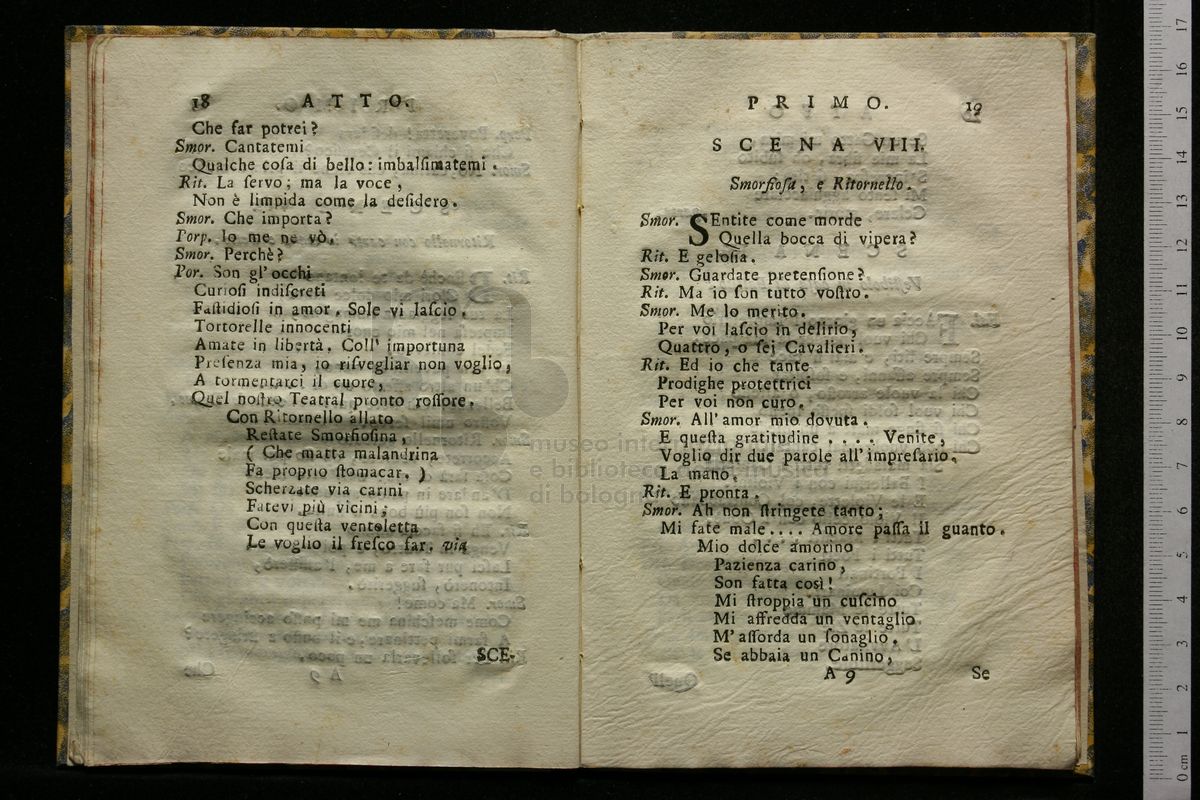 18 ATTO.
Che far potrei?
Smor. Cantatemi
Qualche coſa di bello: imbalſimatemi.
Rit. La ſervo; ma la voce,
Non è limpida come la deſidero.
Smor. Che importa?
Porp. Io me ne vò.
Smor. Perchè?
Por. Son gl' occhi
Curioſi indiſcreti
Faſtidioſi in amor. Sole vi laſcio.
Tortorelle innocenti
Amate in libertà. Coll' importuna
Preſenza mia, io riſvegliar non voglio,
A tormentarci il cuore,
Quel noſtro Teatral pronto roſſore.
Con Ritornello allato
Reſtate Smorfioſina,
( Che matta malandrina
Fa proprio ſtomacar. )
Scherzate via carini
Fatevi più vicini;
Con queſta ventoletta
Le voglio il freſco far. via
SCE-
PRIMO. 19
SCENA VIII.
Smorfioſa, e Ritornello.
Smor. SEntite come morde
Quella bocca di vipera?
Rit. E geloſia.
Smor. Guardate pretenſione?
Rit. Ma io ſon tutto voſtro.
Smor. Me lo merito.
Per voi laſcio in delirio,
Quattro, o ſei Cavalieri.
Rit. Ed io che tante
Prodighe protettrici
Per voi non curo.
Smor. All' amor mio dovuta.
E queſta gratitudine .... Venite,
Voglio dir due parole all' impreſario.
La mano.
Rit. E pronta.
Smor. Ah non ſtringete tanto;
Mi fate male.... Amore paſſa il guanto.
Mio dolce amorino
Pazienza carino,
Son fatta così!
Mi ſtroppia un cuſcino
Mi affredda un ventaglio
M' aſſorda un ſonaglio.
Se abbaia un Canino,
A 9 Se
museo
e biblioteca
di bologna
0 cm 1 2 3 4 5 6 7 8 9 10 11 12 13 14 15 16 17